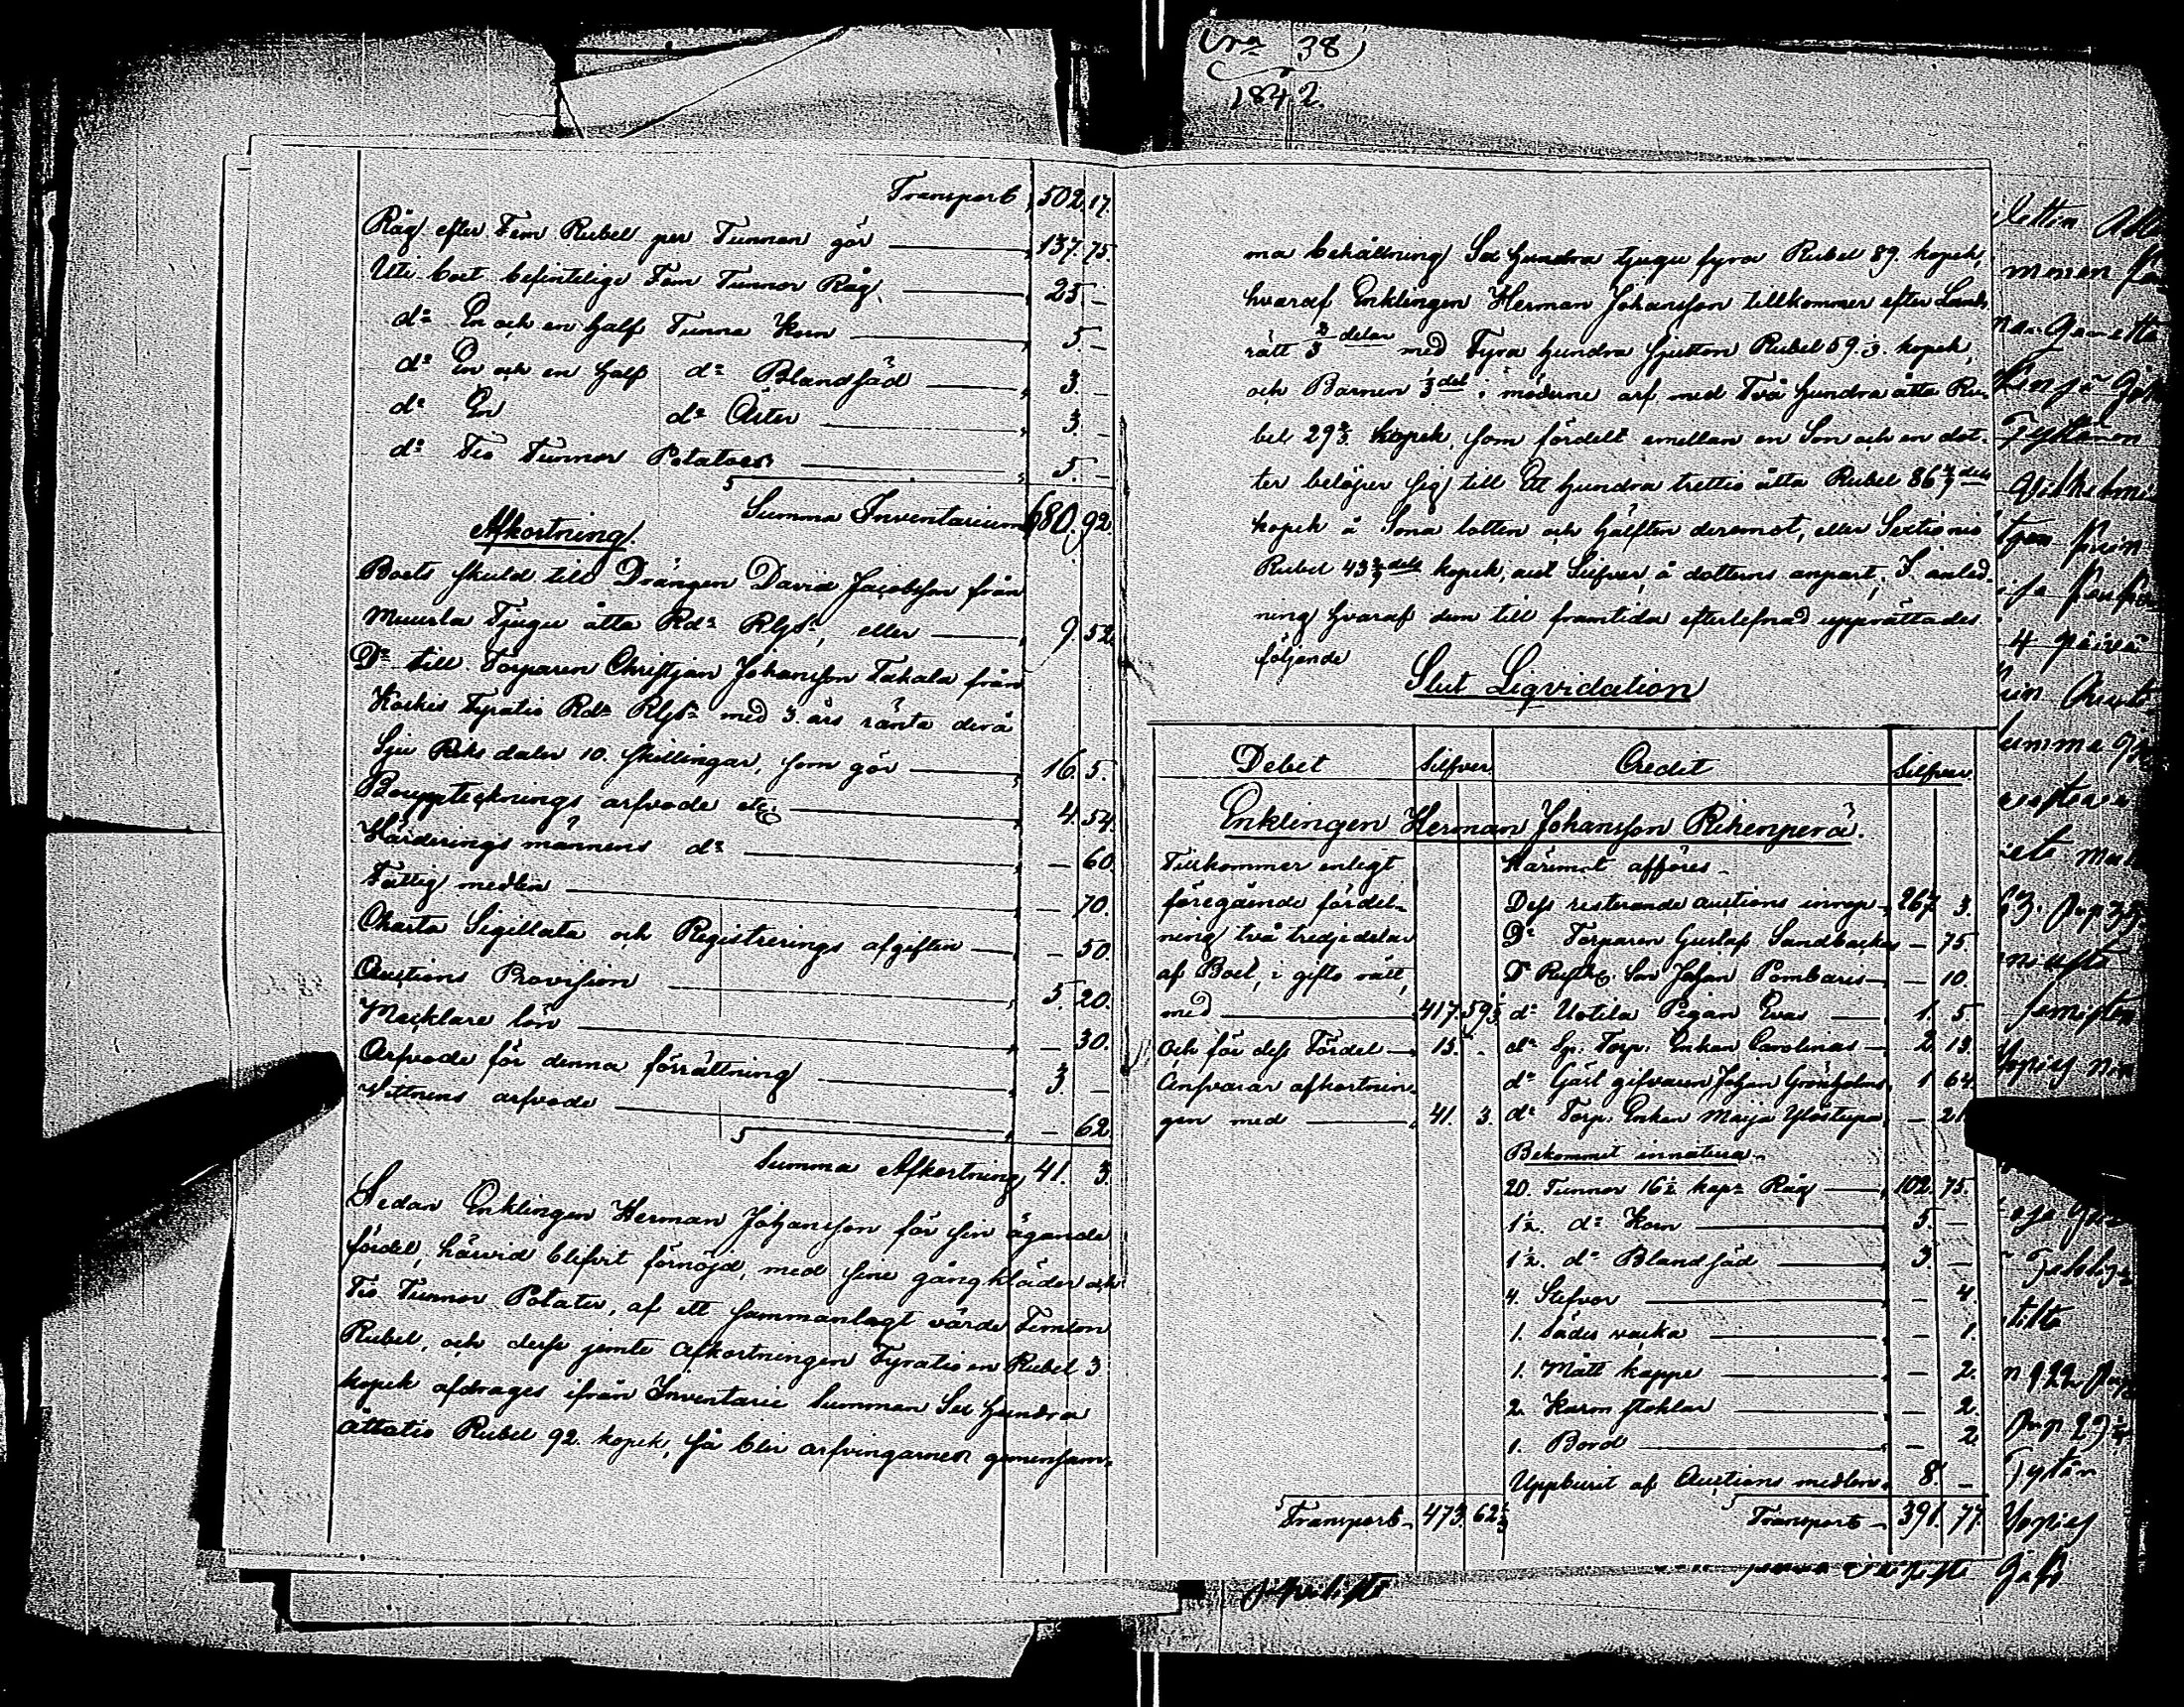 N:ra 38
1842.
Transport 502. 17.
Råg efter Fem Rubel per Tunnan gör 137. 75.
Uti boet befintelige Fem Tunnor Råg 25. –
d:o En och en half Tunna Korn 5. –
d:o En och en half d:o Blandsäd 3. –
d:o En d:o Ärter 3. –
d:o Tio Tunnor Potatoes 5. –
Summa Inventarium 680. 92.
Afkortning.
Boets skuld till Drängen David Jacobsson från
Muurla Tjugu åtta Rd:r Rgs:r, eller 9. 52
D:o till Torparen Christjan Johansson Takala från
Koskis Fyratio Rd:r Rgs:r med 3. års ränta derå
Sju Riksdaler 10. skillingar, som gör 16. 5.
Bouppteknings arfvode etc. 4. 54.
Värderings männens d:o – 60.
Fattig medlen – 70.
Charta Sigillata och Registrerings afgiften – 50.
Auctions Provision 5. 20.
Mäcklare lön – 30.
Arfvode för denna förrättning 3. –
Vittnens arfvode – 62
Summa Afkortning 41. 3.
Sedan Enklingen Herman Johansson för sin ägande
fördel, härvid blifvit förnöjd, med sine gångkläder och
Tio Tunnor Potater, af ett sammanlagt värde Femton
Rubel, och desse jemte Afkortningen Fyratioen Rubel 3
kopek afdrages ifrån Inventarii Summan Sex hundra
åttatio Rubel 92. kopek, så blir arfvingarnes gemensam-
ma behållning Sex hundra tjugu fyra Rubel 89. kopek,
hvaraf Enklingen Herman Johansson tillkommer efter Lands
rätt 2/3 delar med Fyra hundra sjutton Rubel 59 1/3. kopek,
och Barnen 1/3 del i möderne arf med Två hundra åtta Ru-
bel 29 2/3 kopek, som fördelt emellan en Son och en dot-
ter belöper sig till Ett hundra trettio åtta Rubel 86 4/9 dels
kopek å Sona lotten och hälften deremot, eller Sextionio
Rubel 43 2/9 dels kopek, allt Silfver, å dotterns anpart; I anled-
ning hvaraf dem till framtida efterlefnad upprättades
följande
Slut Liqvidation
Debet Silfver. Credit Silfver.
Enklingen Herman Johansson Rihenperä.
Tillkommer enligt
föregående fördel-
ning två tredjedelar
af Boet, i gifto rätt,
med 417. 59 1/3
Och för dess Fördel 15. –
Ansvarar afkortnin-
gen med 41. 3.
Transport 473. 62 1/3
Häremot afföres
Dess resterande auctions inrop 267. 3.
D:o Torparen Gustaf Sandbackas – 75
D:o Rusth. Son Johan Pombares – 10.
d:o Uotila Pigan Evas 1. 5
d:o Sp. Torp. Enkan Carolinas 2. 13.
d:o Gäst gifvaren Johan Grönholms 1 64.
d:o Torp. Enkan Maija Ylöstupa – 21
Bekommit innatura
20. Tunnor 16 1/2 kap:r Råg 102. 75.
1 1/2. d:o Korn 5. –
1 1/2. d:o Blandsäd 3 –
4. Stefvor – 4.
1. Sädes vacka – 1.
1. Mått kappe – 2.
2. Karm stohlar – 2.
1. Bord – 2
Uppburit af Auctions medlen 8 –
Transport 391. 77.